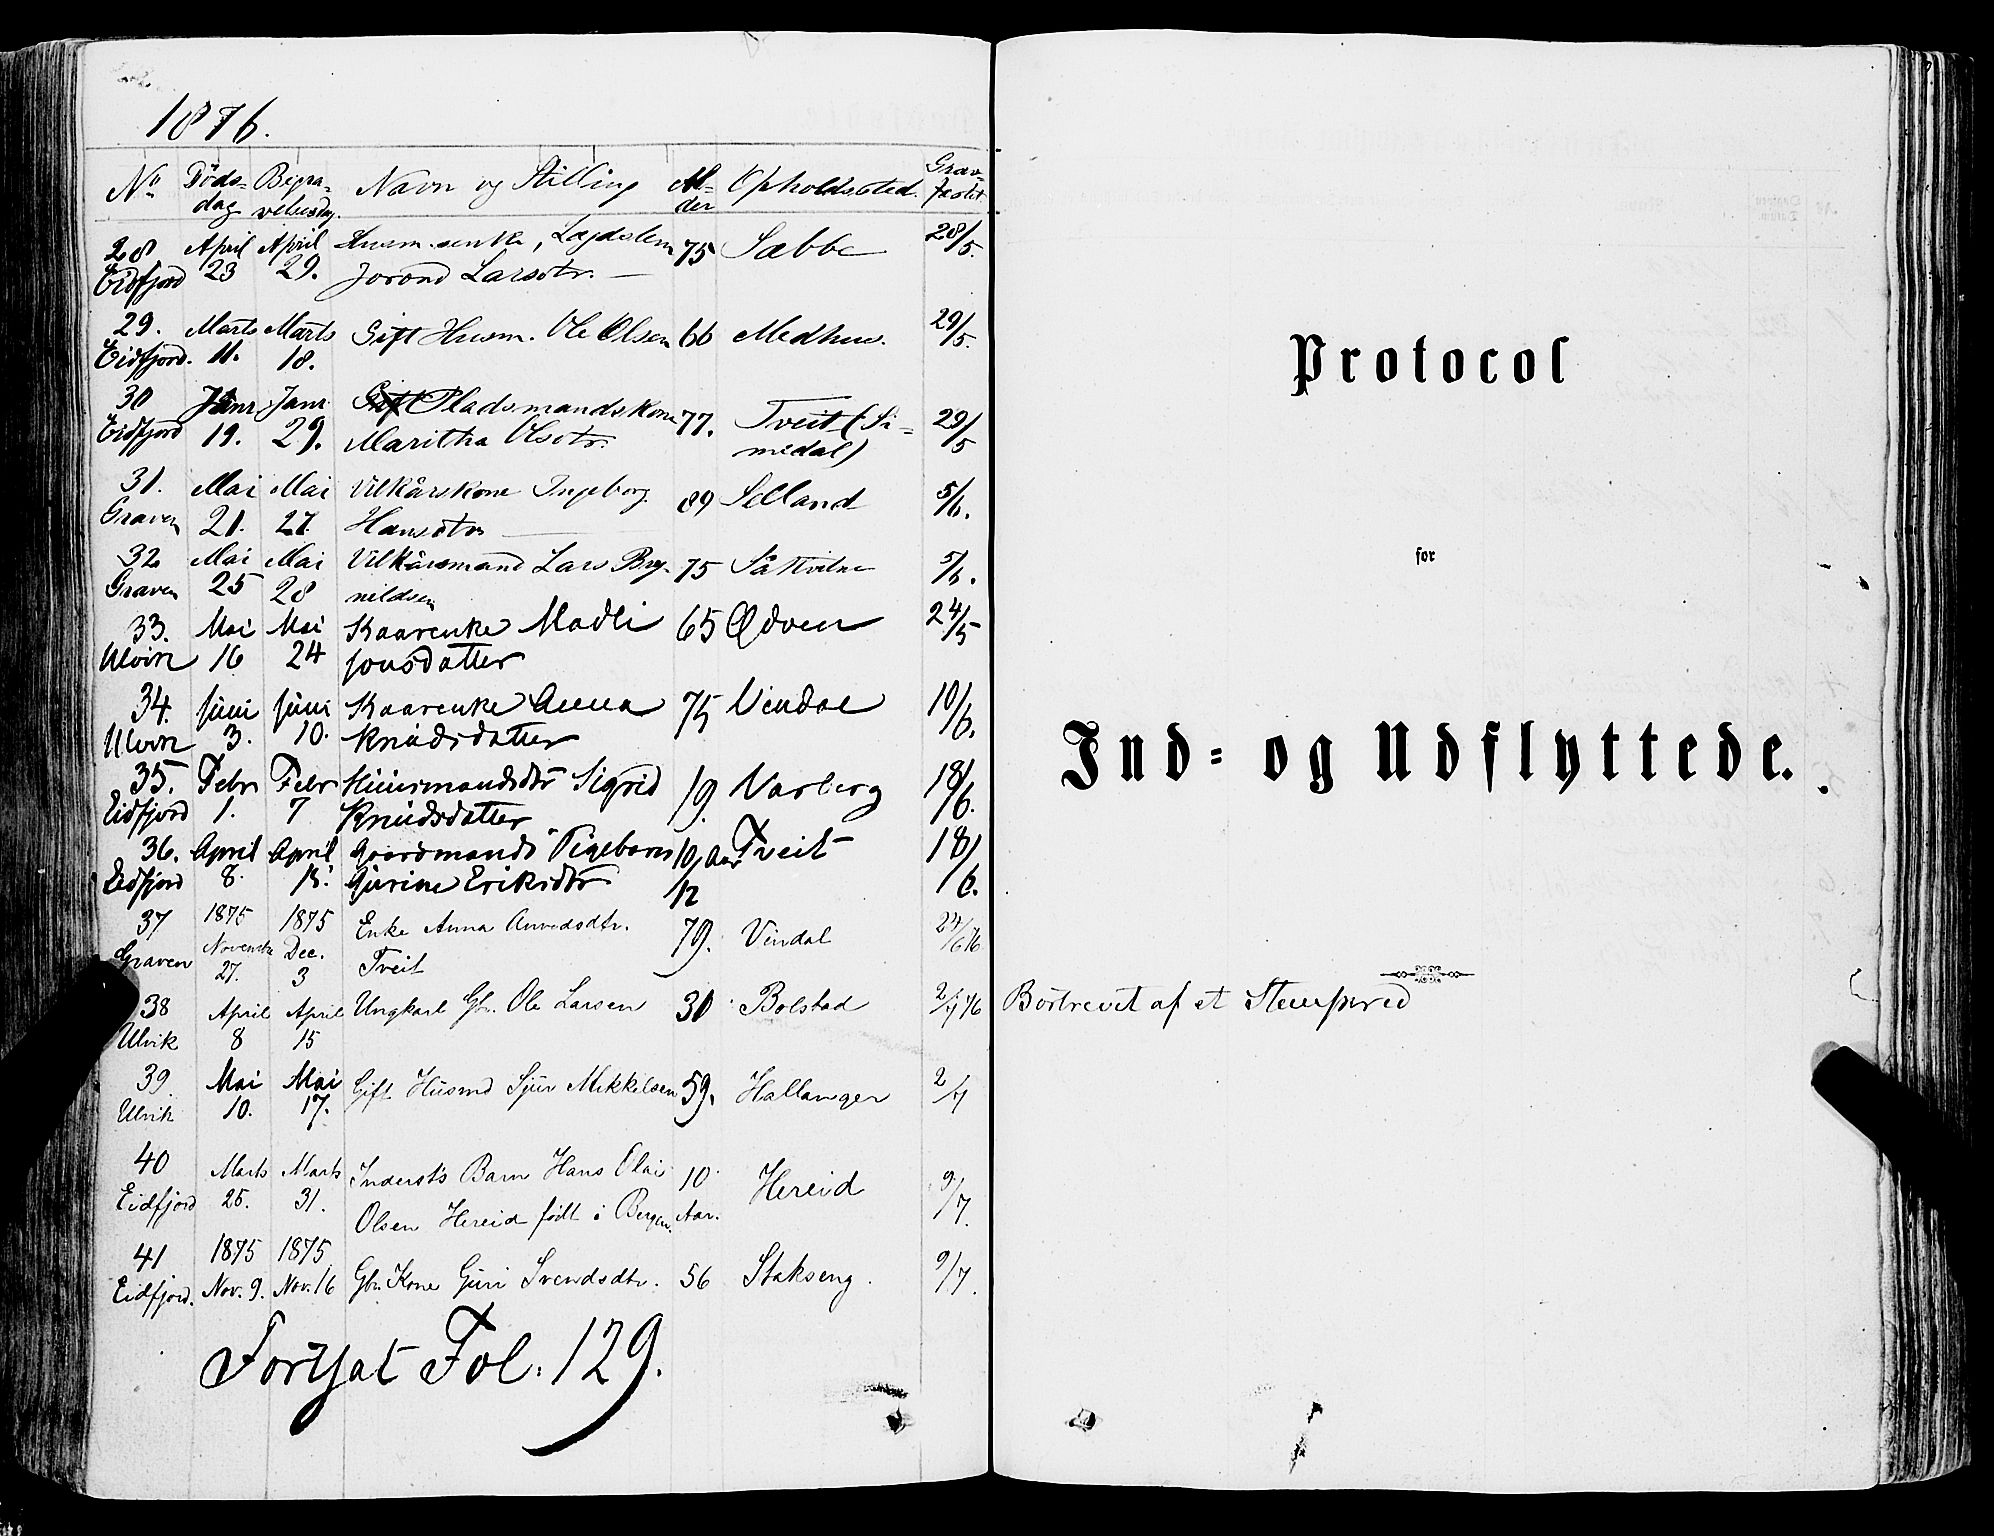 1876.
No Døds- dag Begra- velsesdag. Navn og Stilling Al- der Opholdssted. Grav- fæstet.
28 April April Husm.enke, Lægdslem 75 Sæbbe 28/5.
Eidfjord 23 29. Jorond Larsdtr.
29. Marts Marts Gift Husm. Ole Olsen 66 Medhus. 29/5.
Eidfjord. 11. 18.
30 Janr Janr Pladsmandskone 77. Tveit (Si- 29/5
Eidfjord 19. 29. Maritha Olsdtr. medal)
31. Mai Mai Vilkårskone Ingeborg 89 Selland 5/6.
Graven 21. 27. Hansdtr
32 Mai Mai Vilkårsmand Lars Bry- 75 5/6.
Graven 25 28 nildsen
33. Mai Mai Kaarenke Madli 65 Odven 24/5
Ulvik 16 24 Jonsdatter
34. Juni Juni Kaarenke Anna 75 Vindal 10/6.
Ulvik 3. 10. Knudsdatter
35. Febr Febr Huusmandsdtr Sigrid 19. Varberg 18/6.
Eidfjord 1. 7 Knudsdatter
36. April April Gaardmands Pigebarn 10 Aar Tveit 18/6.
Eidfjord 8. 15. Gurine Eriksdtr 12
37 1875 1875 Enke Anna Amundsdtr. 79. Vindal 24/6 76
Graven November Dec. Tveit
27. 3
38 April April Ungkarl Gbr. Ole Larsen 30 Bolstad 2/7 76
Ulvik 8 15
39. Mai Mai Gift Husmd Sjur Mikkelsen 59. Hallanger 2/7
Ulvik 10. 17.
40 Marts Marts Inderst's Barn Hans Olai 10 Hereid 9/7.
Eidfjord 25. 31. Olsen Hereid født i Bergen. Aar.
41 1875 1875
Eidfjord. Nov. 9. Nov. 16 Gbr. Kone Guri Svendsdtr. 56 Stakseng. 9/7.
Fortsat Fol. 129.
Protocol
for
Ind- og Udflyttede.
Bortrevet af et